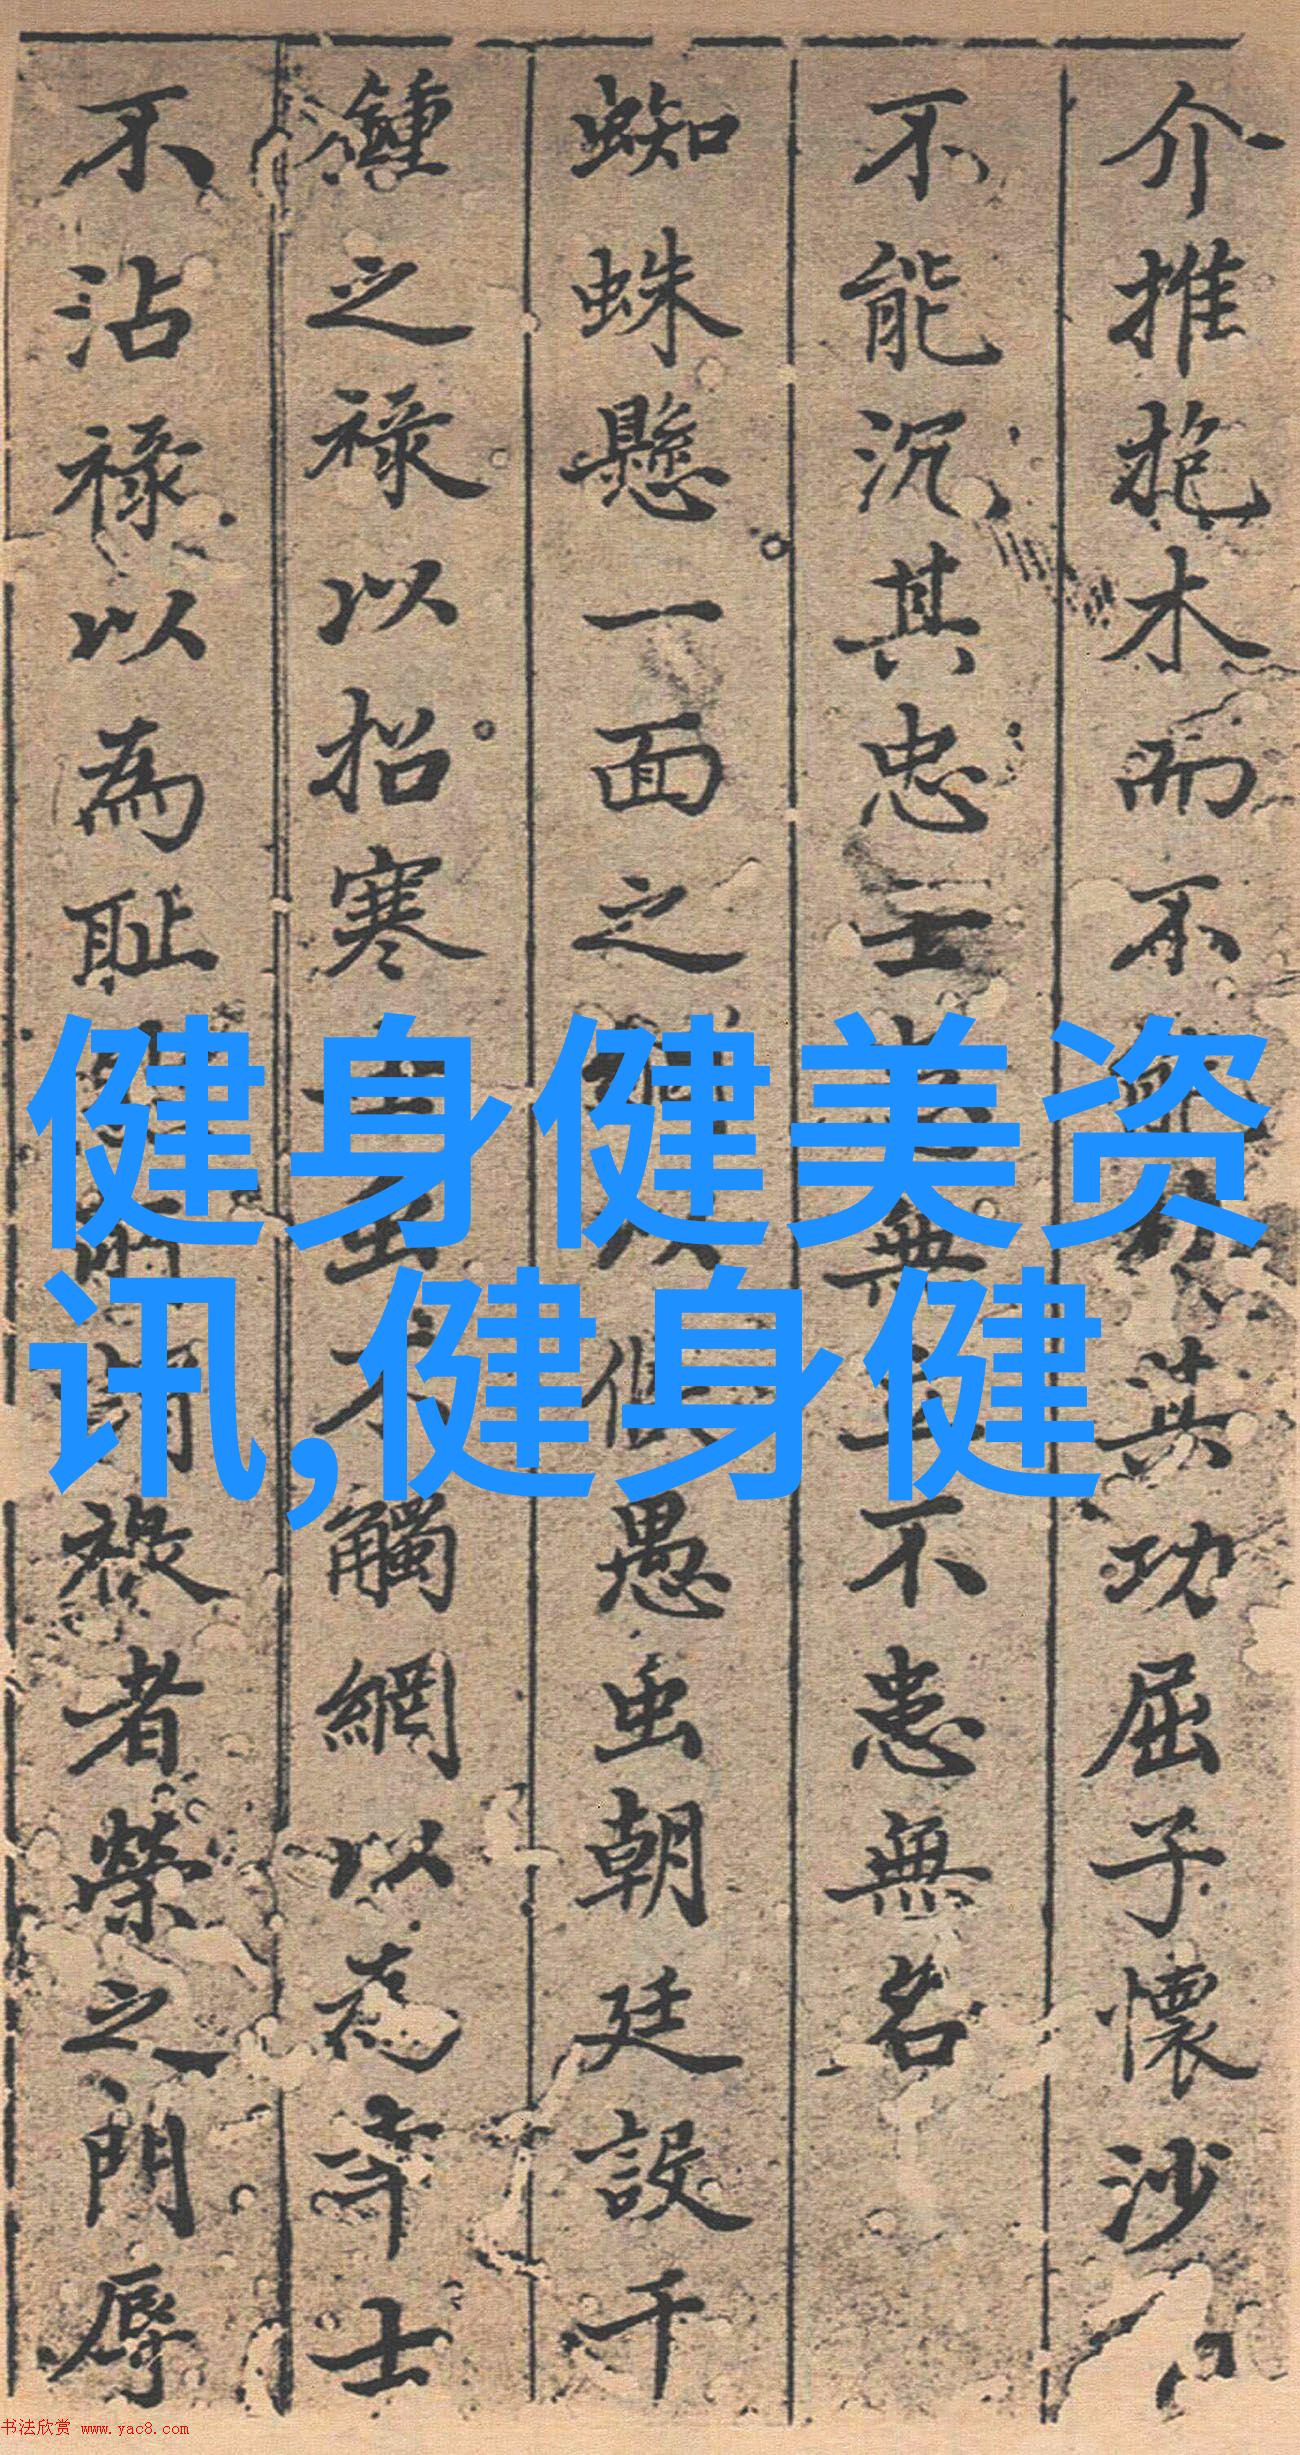 介推抱木而不
共功屈子懷沙
不能沉其忠士
無
不患無名
蜘蛛懸一面之
以
愚虫朝廷設千
鍾之祿以招寒
不觸網以為
士
不沾祿以為耻
祿者榮之門辱
健身健美资
讯,健身健
书法欣赏 www.yac8.com